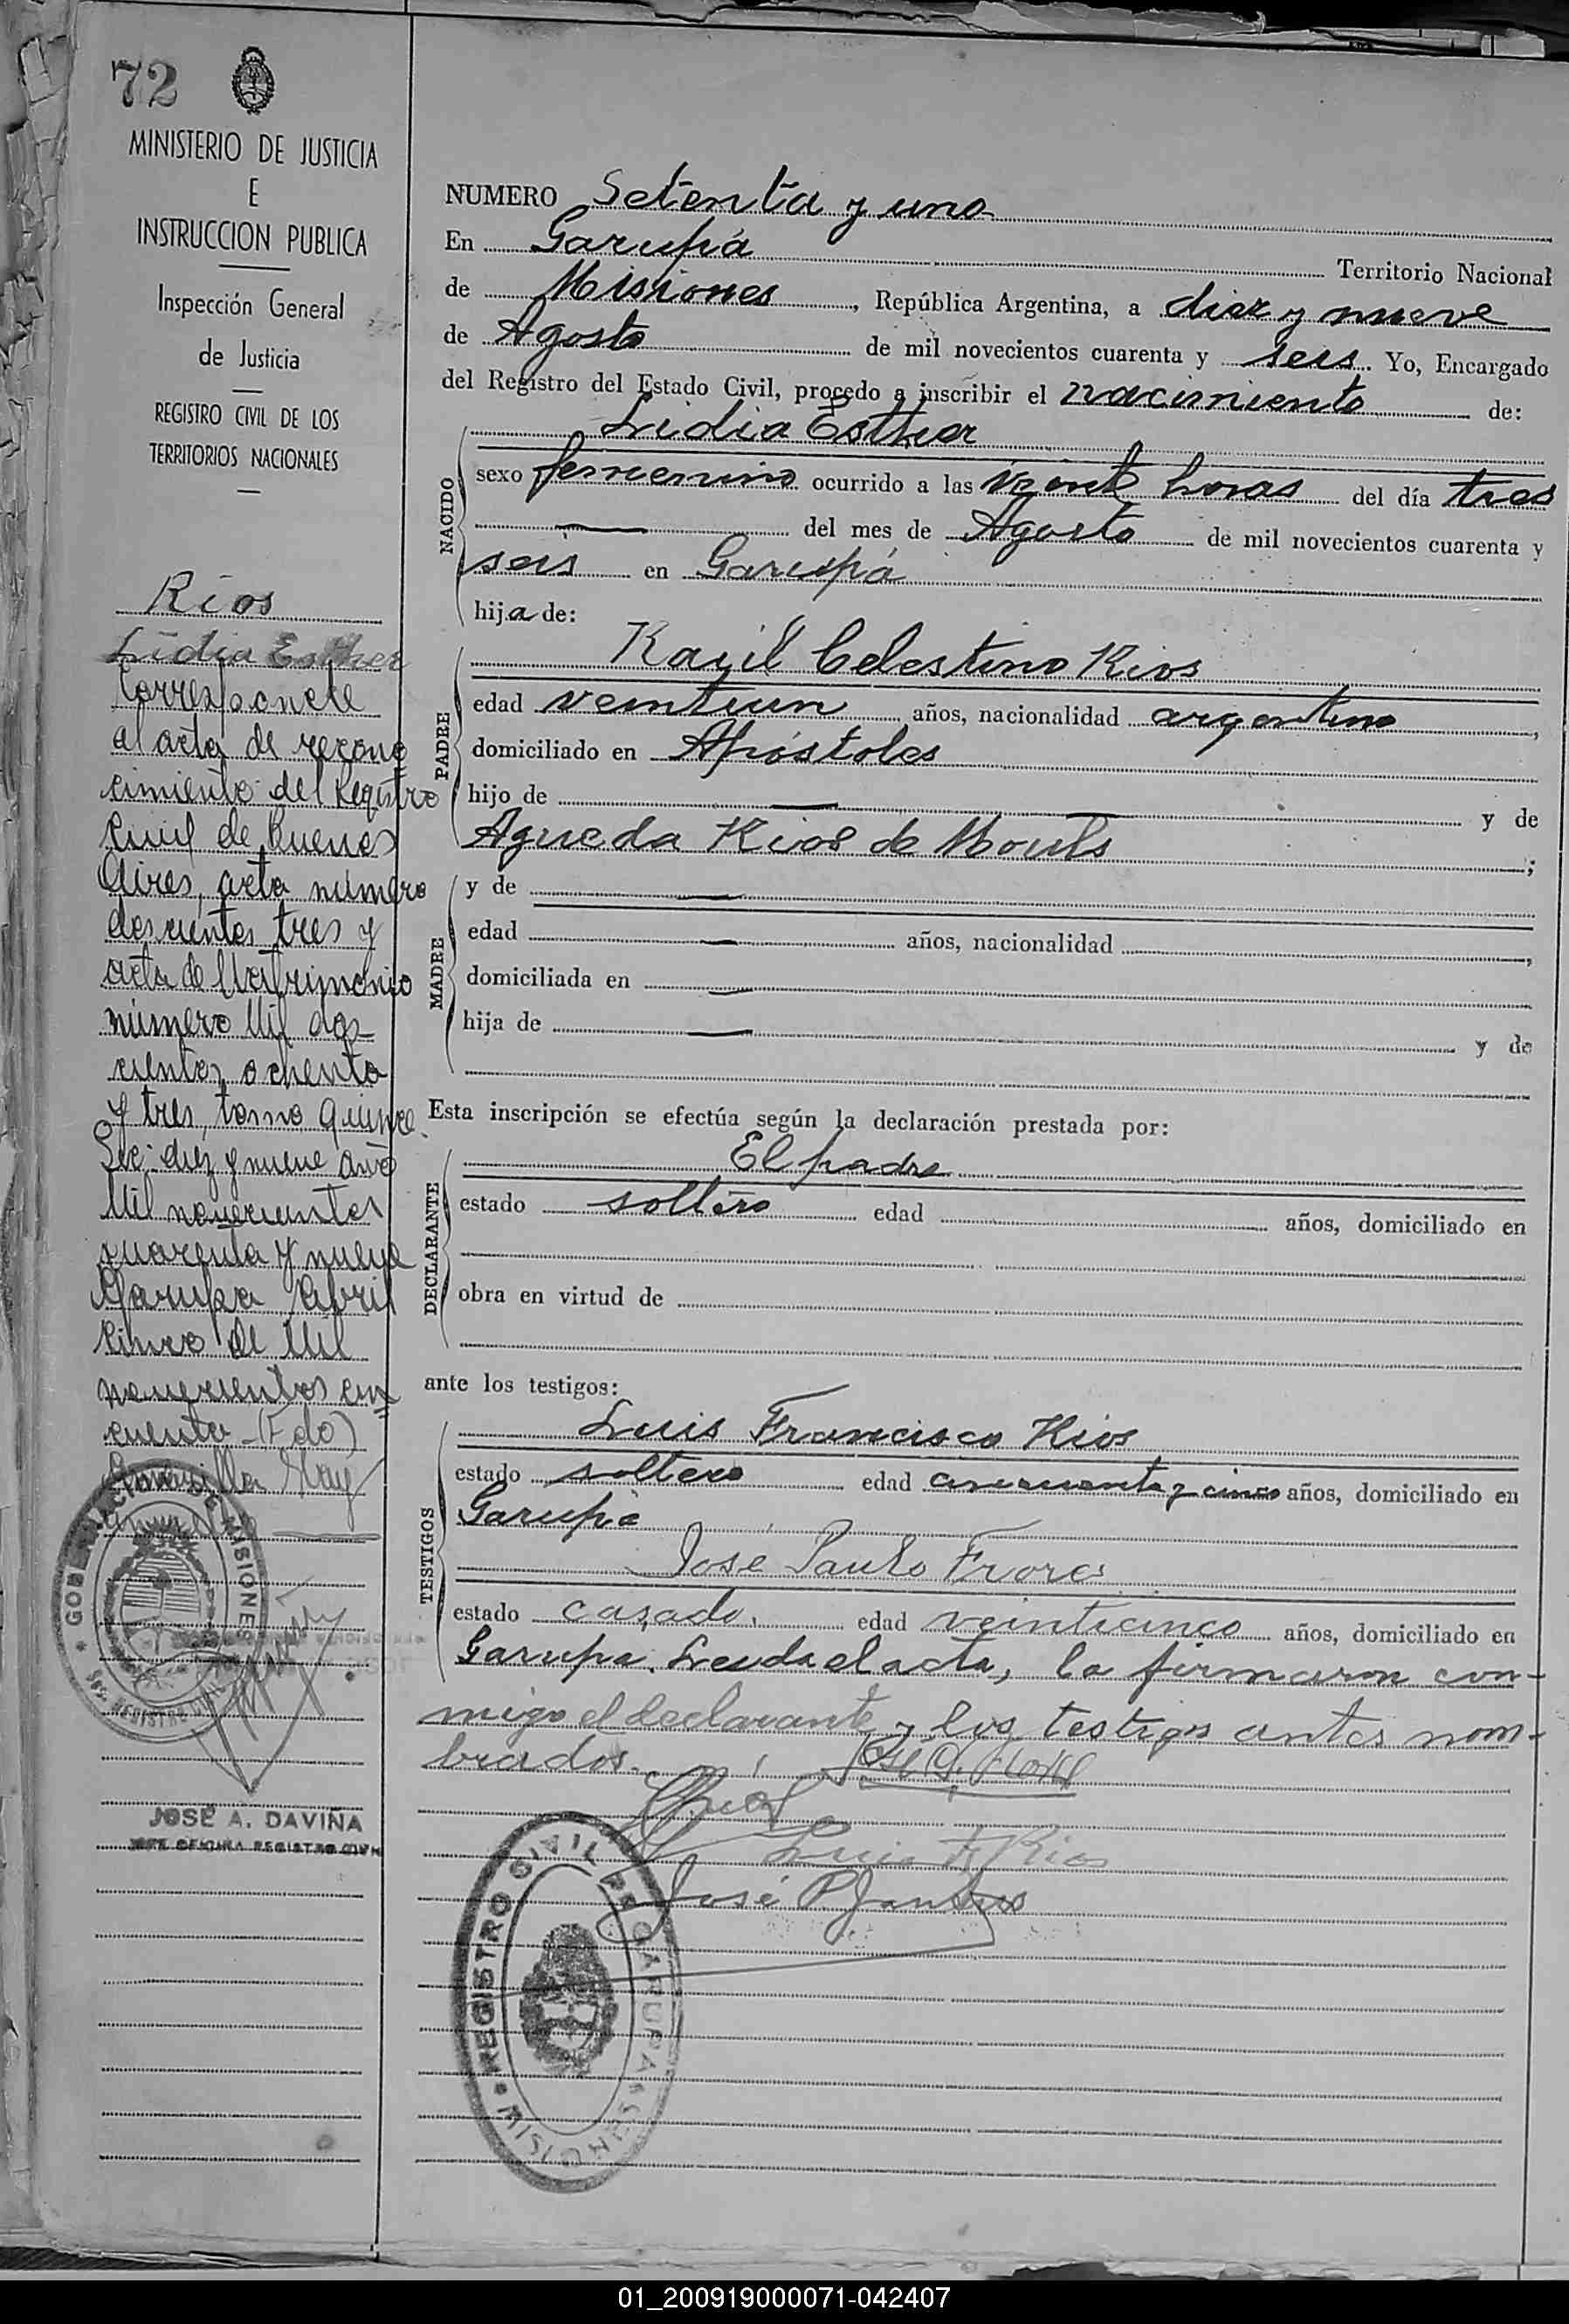 72
MINISTERIO DE JUSTICIA
E
INSTRUCCION PUBLICA
Inspección General
de Justicia
REGISTRO CIVIL DE LOS
TERRITORIOS NACIONALES
Rios
Lidia Esther
Corresponde
al acta de recono
cimiento del Registro
Civil de Buenos
Aires, acta número
doscientos tres y
acta de Matrimonio
número Mil dos
cientos ochenta
y tres, tomo quince
Sec. diez y nueve año
Mil novecientos
cuarenta y nueve
Garupa Abril
cinco de Mil
novecientos cin
cuenta (Fdo)
GOBERNACION DE MISIONES
REGISTRO CIVIL
JOSÉ A. DAVIÑA
JEFE OFICINA REGISTRO CIVIL
NUMERO Setenta y uno
En Garupá Territorio Nacional
de Misiones, República Argentina, a diez y nueve
de Agosto de mil novecientos cuarenta y seis. Yo, Encargado
del Registro del Estado Civil, procedo a inscribir el nacimiento de:
NACIDO
Lidia Esther
sexo femenino ocurrido a las veinte horas del día tres
del mes de Agosto de mil novecientos cuarenta y
seis en Garupá
hija de:
PADRE
Raúl Celestino Rios
edad veintiun años, nacionalidad argentino,
domiciliado en Apóstoles
hijo de y de
Agueda Rios de ;
MADRE
y de
edad años, nacionalidad ,
domiciliada en
hija de y de
Esta inscripción se efectúa según la declaración prestada por:
DECLARANTE
El padre
estado soltero edad años, domiciliado en
obra en virtud de
ante los testigos:
TESTIGOS
Luis Francisco Rios
estado soltero edad cincuenta y cinco años, domiciliado en
Garupá
Jose Paulo
estado casado, edad veinticinco años, domiciliado en
Garupa. Leida el acta, la firmaron con-
migo el declarante y los testigos antes nom-
brados.
Luis F. Rios
José P.
REGISTRO CIVIL DE GARUPA
MISIONES
01_200919000071-042407